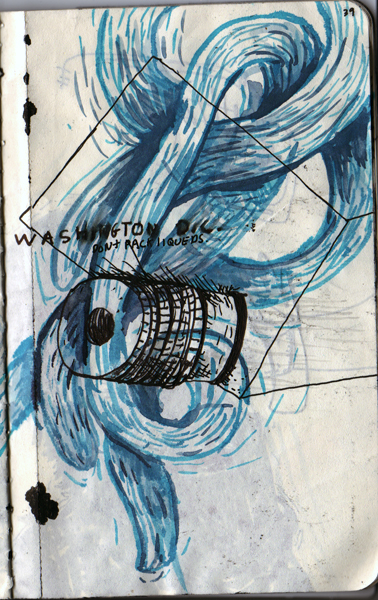 39
WASHINGTON, D.C.
DON'T RACE LIQUIDS.